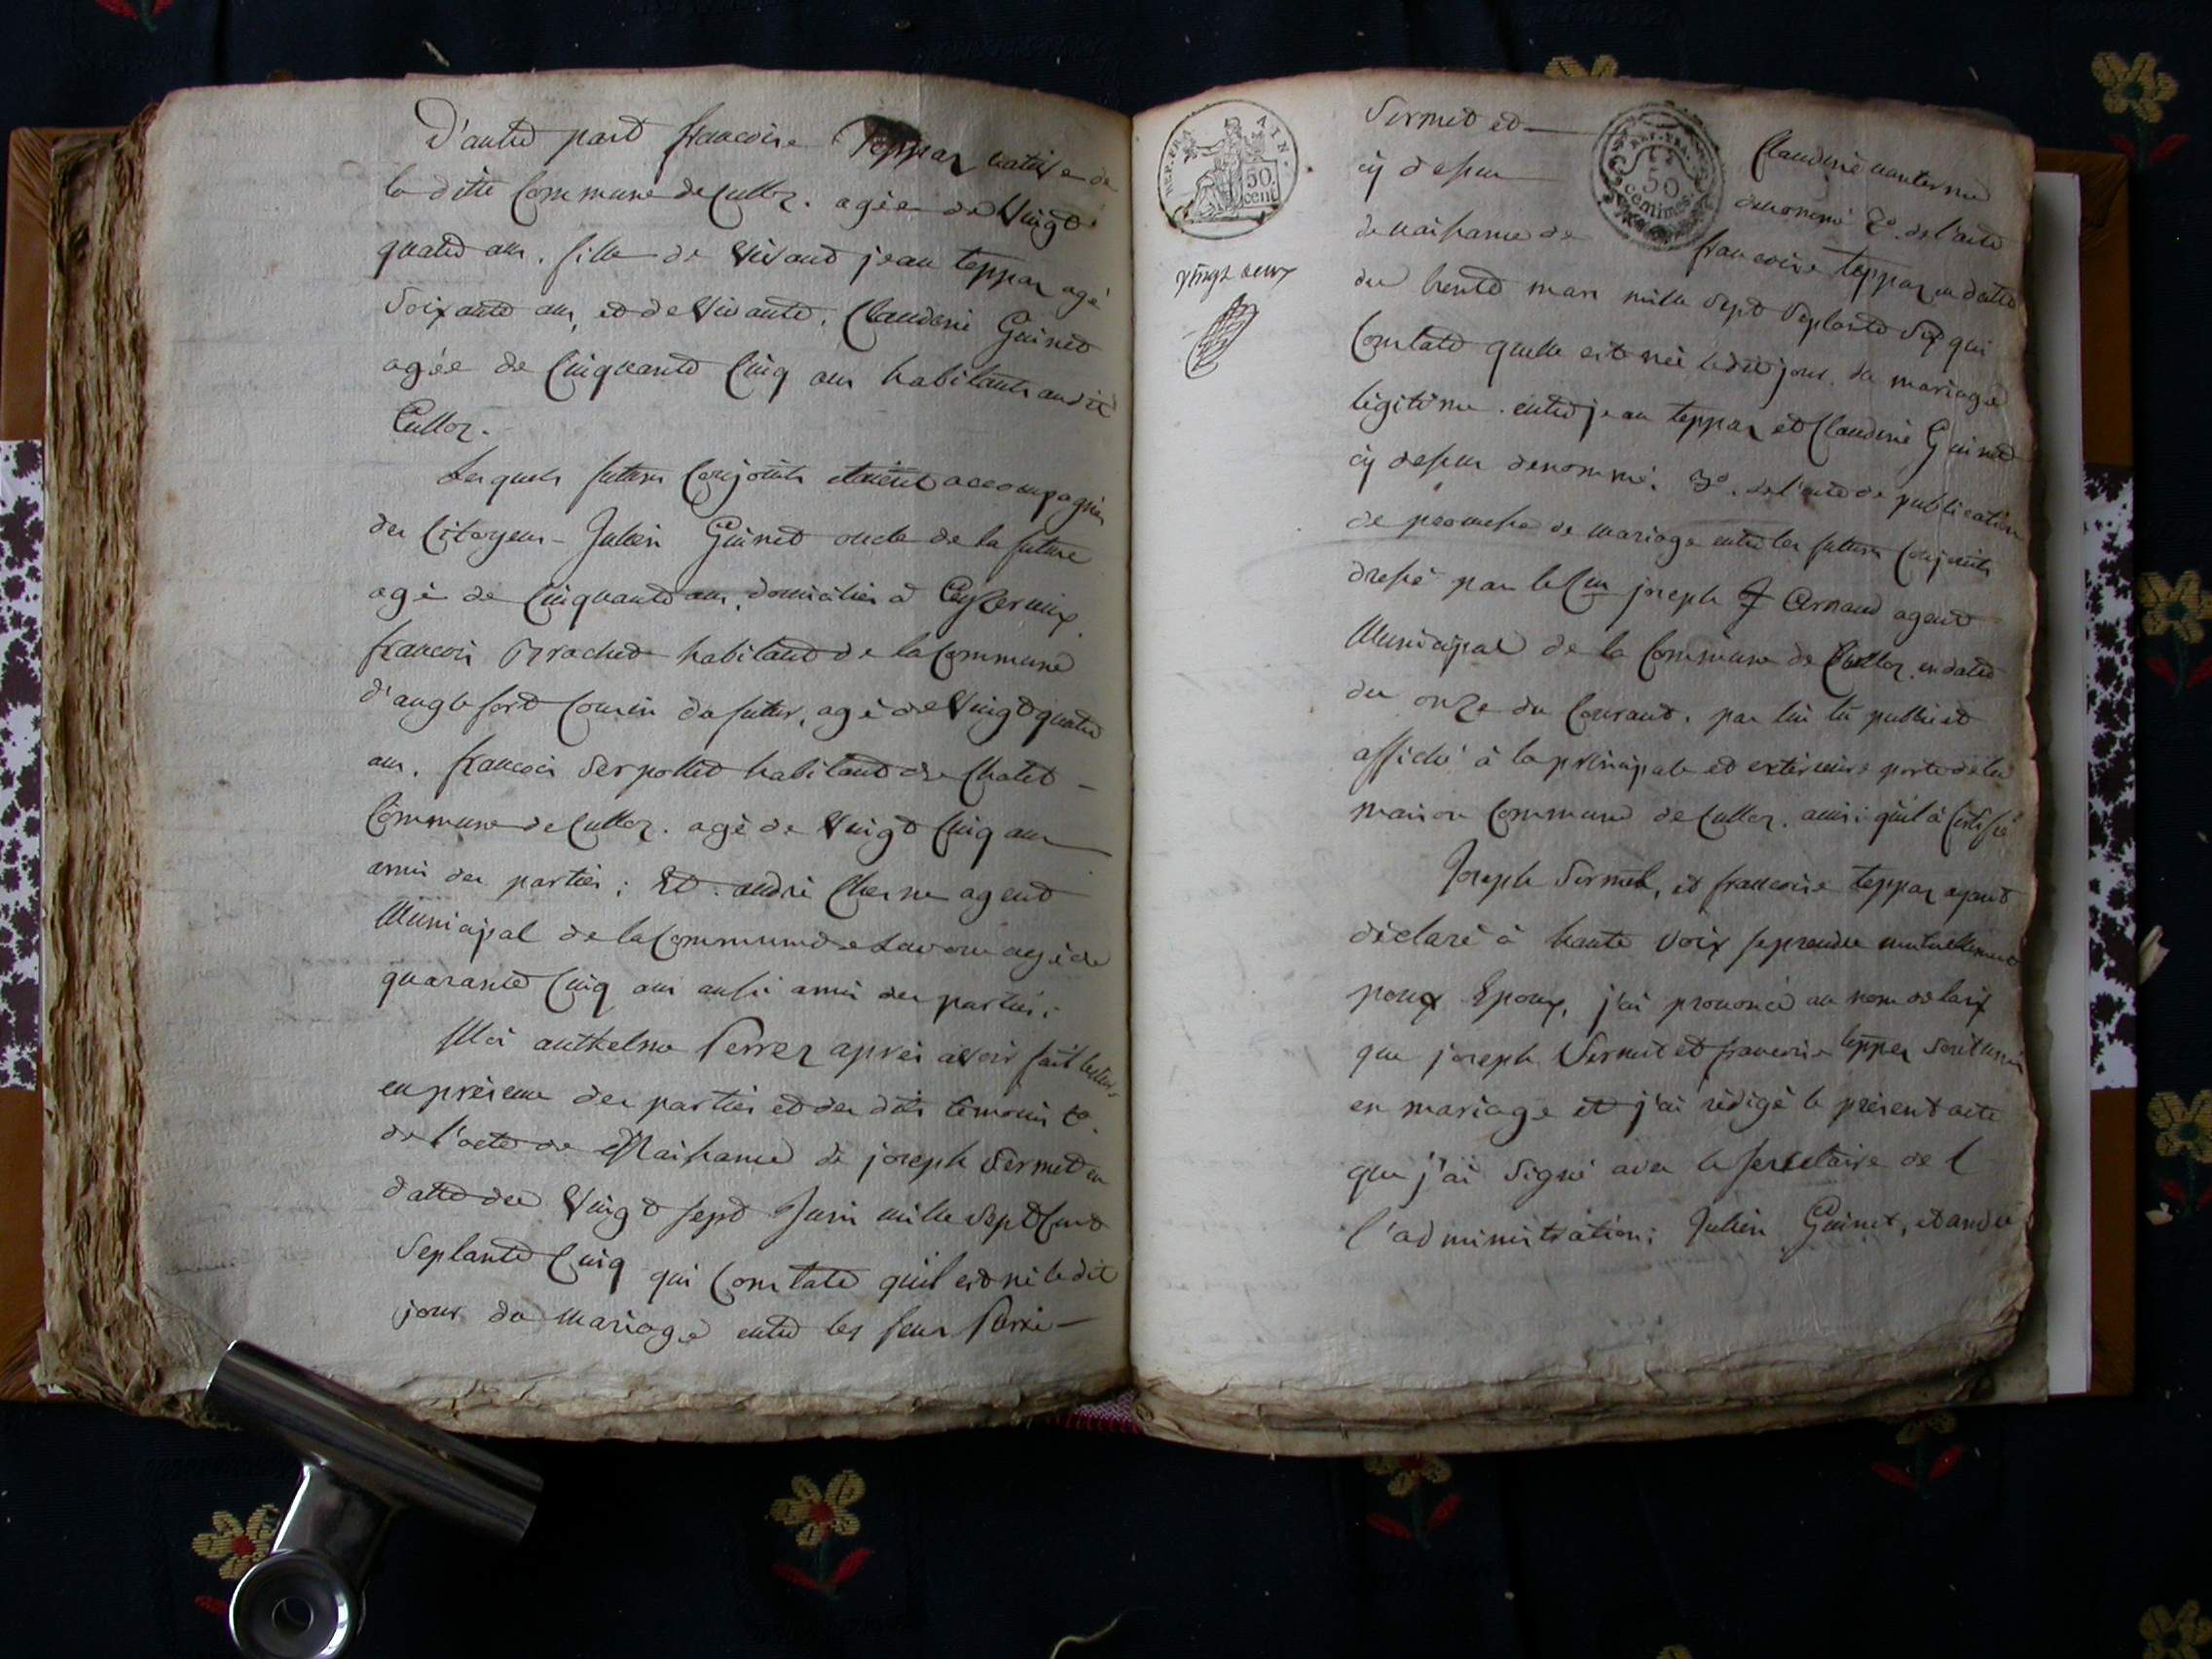 D'autre part francoise Teppaz native de
la ditte Commune de Culloz. agée de Vingt
quatre ans. fille de Vivant jean teppaz agé
Soixante ans, et de Vivante, Claudine Guinet
agée de Cinquante Cinq ans habitants audit
Culloz.
Lesquels futurs Conjoints etoient accompagnés
des Citoyens - Julien Guinet oncle de la future
agé de Cinquante ans, domicilié a Ceyzerieux
francois Brachet habitant de la Commune
d'anglefort Cousin du futur, agé de Vingt quatre
ans, francois Serpollet habitant de Chatel -
Commune de Culloz. agé de Vingt Cinq ans
amis des parties; Et. andré Chesne agent
Municipal de la Commune de Lavour agé de
quarante Cinq ans aussi amis des parties;
Moi anthelme Perrez après avoir fait lecture
en présence des parties et des dits témoins 1o.
de l'acte de Naissance de joseph Sermet en
datte du Vingt sept Juin mille Sept Cent
Septante Cinq qui Constate quil est né le dit
jour du Mariage entre les feus Pierre -
REP. FRA. AIN.
50 cent
vingt deux
REP. FRA.
50
centimes
Sermet et — Claudine
cy dessus dénommé 2o. de l'acte
de naissance de francoise teppaz en datte
du trente mars mille Sept Septante Six qui
Constate quelle est née ledit jour. du mariage
légitime. entre jean teppaz et Claudine Guinet
cy dessus denommé. 3o. de l'acte de publication
de promesse de mariage entre les futurs Conjoints
dressé par le Cen joseph Arnaud agent
Municipal de la Commune de Culloz. en date
du onze du Courant. par lui lü publié et
affiché à la principale et exterieure porte de la
maison Commune de Culloz. ainsi quil à Certifié
Joseph Sermet, et francoise teppaz ayant
déclaré à haute voix se prendre mutuellement
pour Epoux, j'ai prononcé au nom de la loix
que joseph Sermet et francoise teppaz sont unis
en mariage et j'ai rédigé le présent acte
que j'ai Signé avec le secretaire de l
l'administration; Julien Guinet, et andré